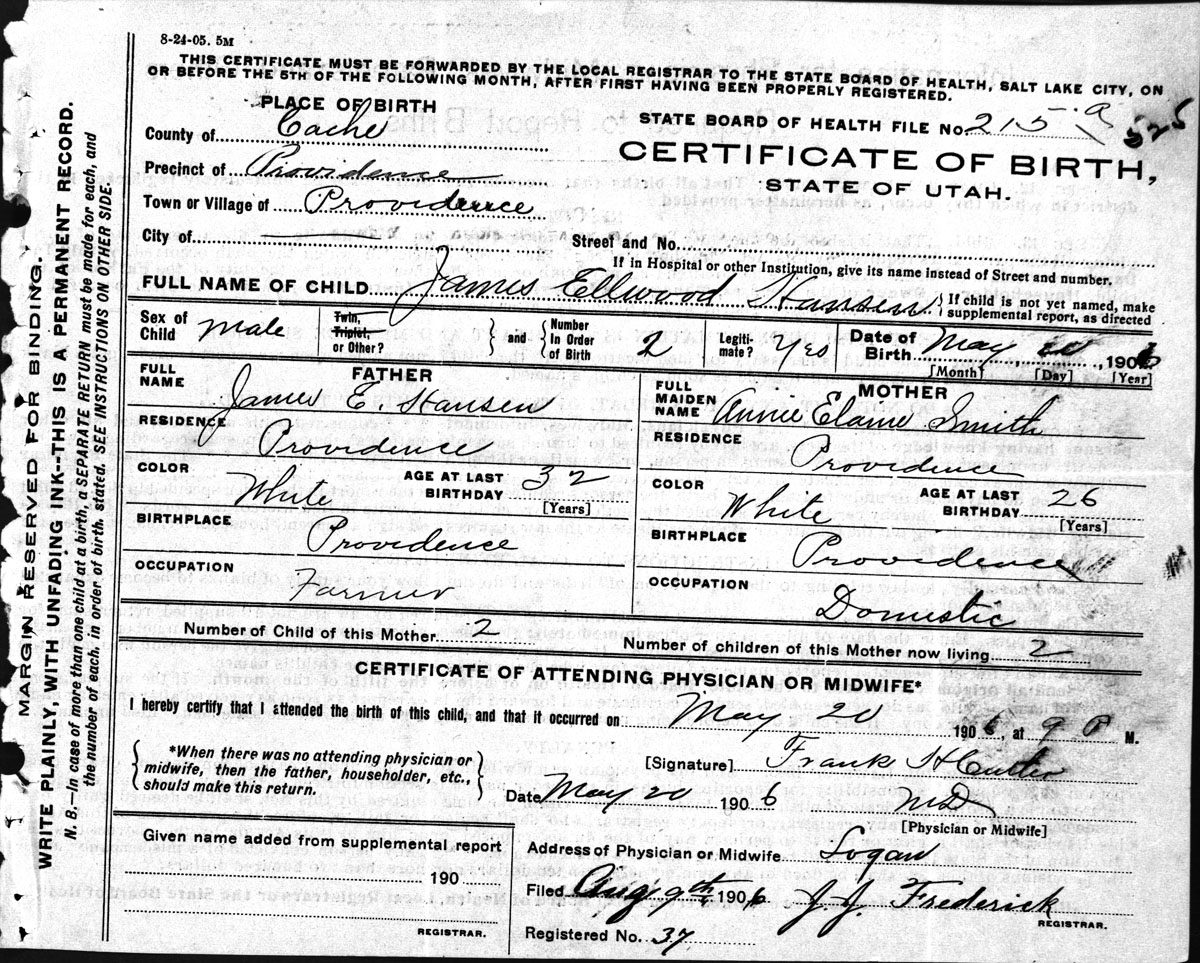 8-24-05. 5M
THIS CERTIFICATE MUST BE FORWARDED BY THE LOCAL REGISTRAR TO THE STATE BOARD OF HEALTH, SALT LAKE CITY, ON
OR BEFORE THE 5TH OF THE FOLLOWING MONTH, AFTER FIRST HAVING BEEN PROPERLY REGISTERED.
PLACE OF BIRTH
County of Cache
Precinct of Providence
Town or Village of Providence
City of
STATE BOARD OF HEALTH FILE No. 215 a 525
CERTIFICATE OF BIRTH,
STATE OF UTAH.
Street and No.
If in Hospital or other Institution, give its name instead of Street and number.
FULL NAME OF CHILD James Ellwood Hansen { If child is not yet named, make
supplemental report, as directed
Sex of Child male
Twin, Triplet, or Other? } and { Number In Order of Birth 2
Legiti-mate? Yes
Date of Birth May 20, 1906
[Month] [Day] [Year]
FATHER
FULL NAME James E. Hansen
RESIDENCE Providence
COLOR White
AGE AT LAST BIRTHDAY 32
[Years]
BIRTHPLACE Providence
OCCUPATION Farmer
MOTHER
FULL MAIDEN NAME Annie Elaine Smith
RESIDENCE Providence
COLOR White
AGE AT LAST BIRTHDAY 26
[Years]
BIRTHPLACE Providence
OCCUPATION Domestic
Number of Child of this Mother 2
Number of children of this Mother now living 2
CERTIFICATE OF ATTENDING PHYSICIAN OR MIDWIFE*
I hereby certify that I attended the birth of this child, and that it occurred on May 20 1906, at 9 P M.
{ *When there was no attending physician or
midwife, then the father, householder, etc.,
should make this return. }
[Signature] Frank H
Date May 20 1906 MD
[Physician or Midwife]
Given name added from supplemental report
190
REGISTRAR.
Address of Physician or Midwife Logan
Filed Aug 9th 1906 J. J. Frederick
REGISTRAR.
Registered No. 37
MARGIN RESERVED FOR BINDING.
WRITE PLAINLY, WITH UNFADING INK--THIS IS A PERMANENT RECORD.
N. B.—In case of more than one child at a birth, a SEPARATE RETURN must be made for each, and
the number of each, in order of birth, stated. SEE INSTRUCTIONS ON OTHER SIDE.